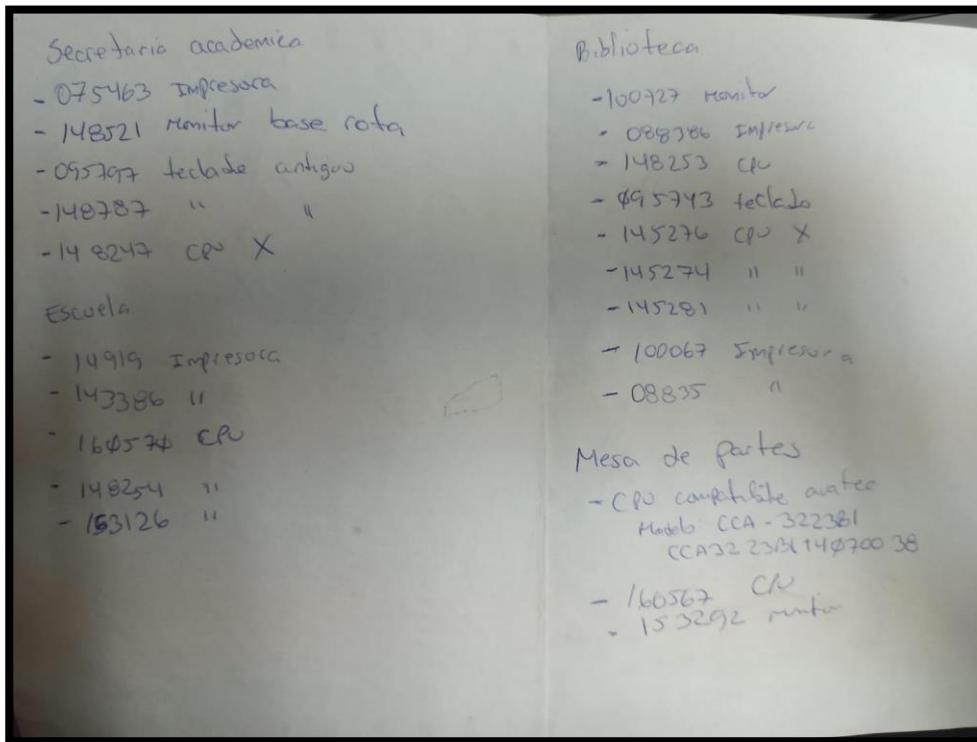 Secretaria academica
- 075463 Impresora
- 148521 Monitor base rota
- 095797 teclado antiguo
- 148787 " "
- 148247 CPU X
Escuela
- 14919 Impresora
- 143386 "
- 160570 CPU
- 148254 "
- 153126 "
Biblioteca
- 100727 Monitor
- 088386 Impresora
- 148253 CPU
- 095743 teclado
- 145276 CPU X
- 145274 " "
- 145281 " "
- 100067 Impresora
- 08835 "
Mesa de partes
- CPU compatible
Modelo CCA - 322381
- 160567 CPU
- 153292 monitor